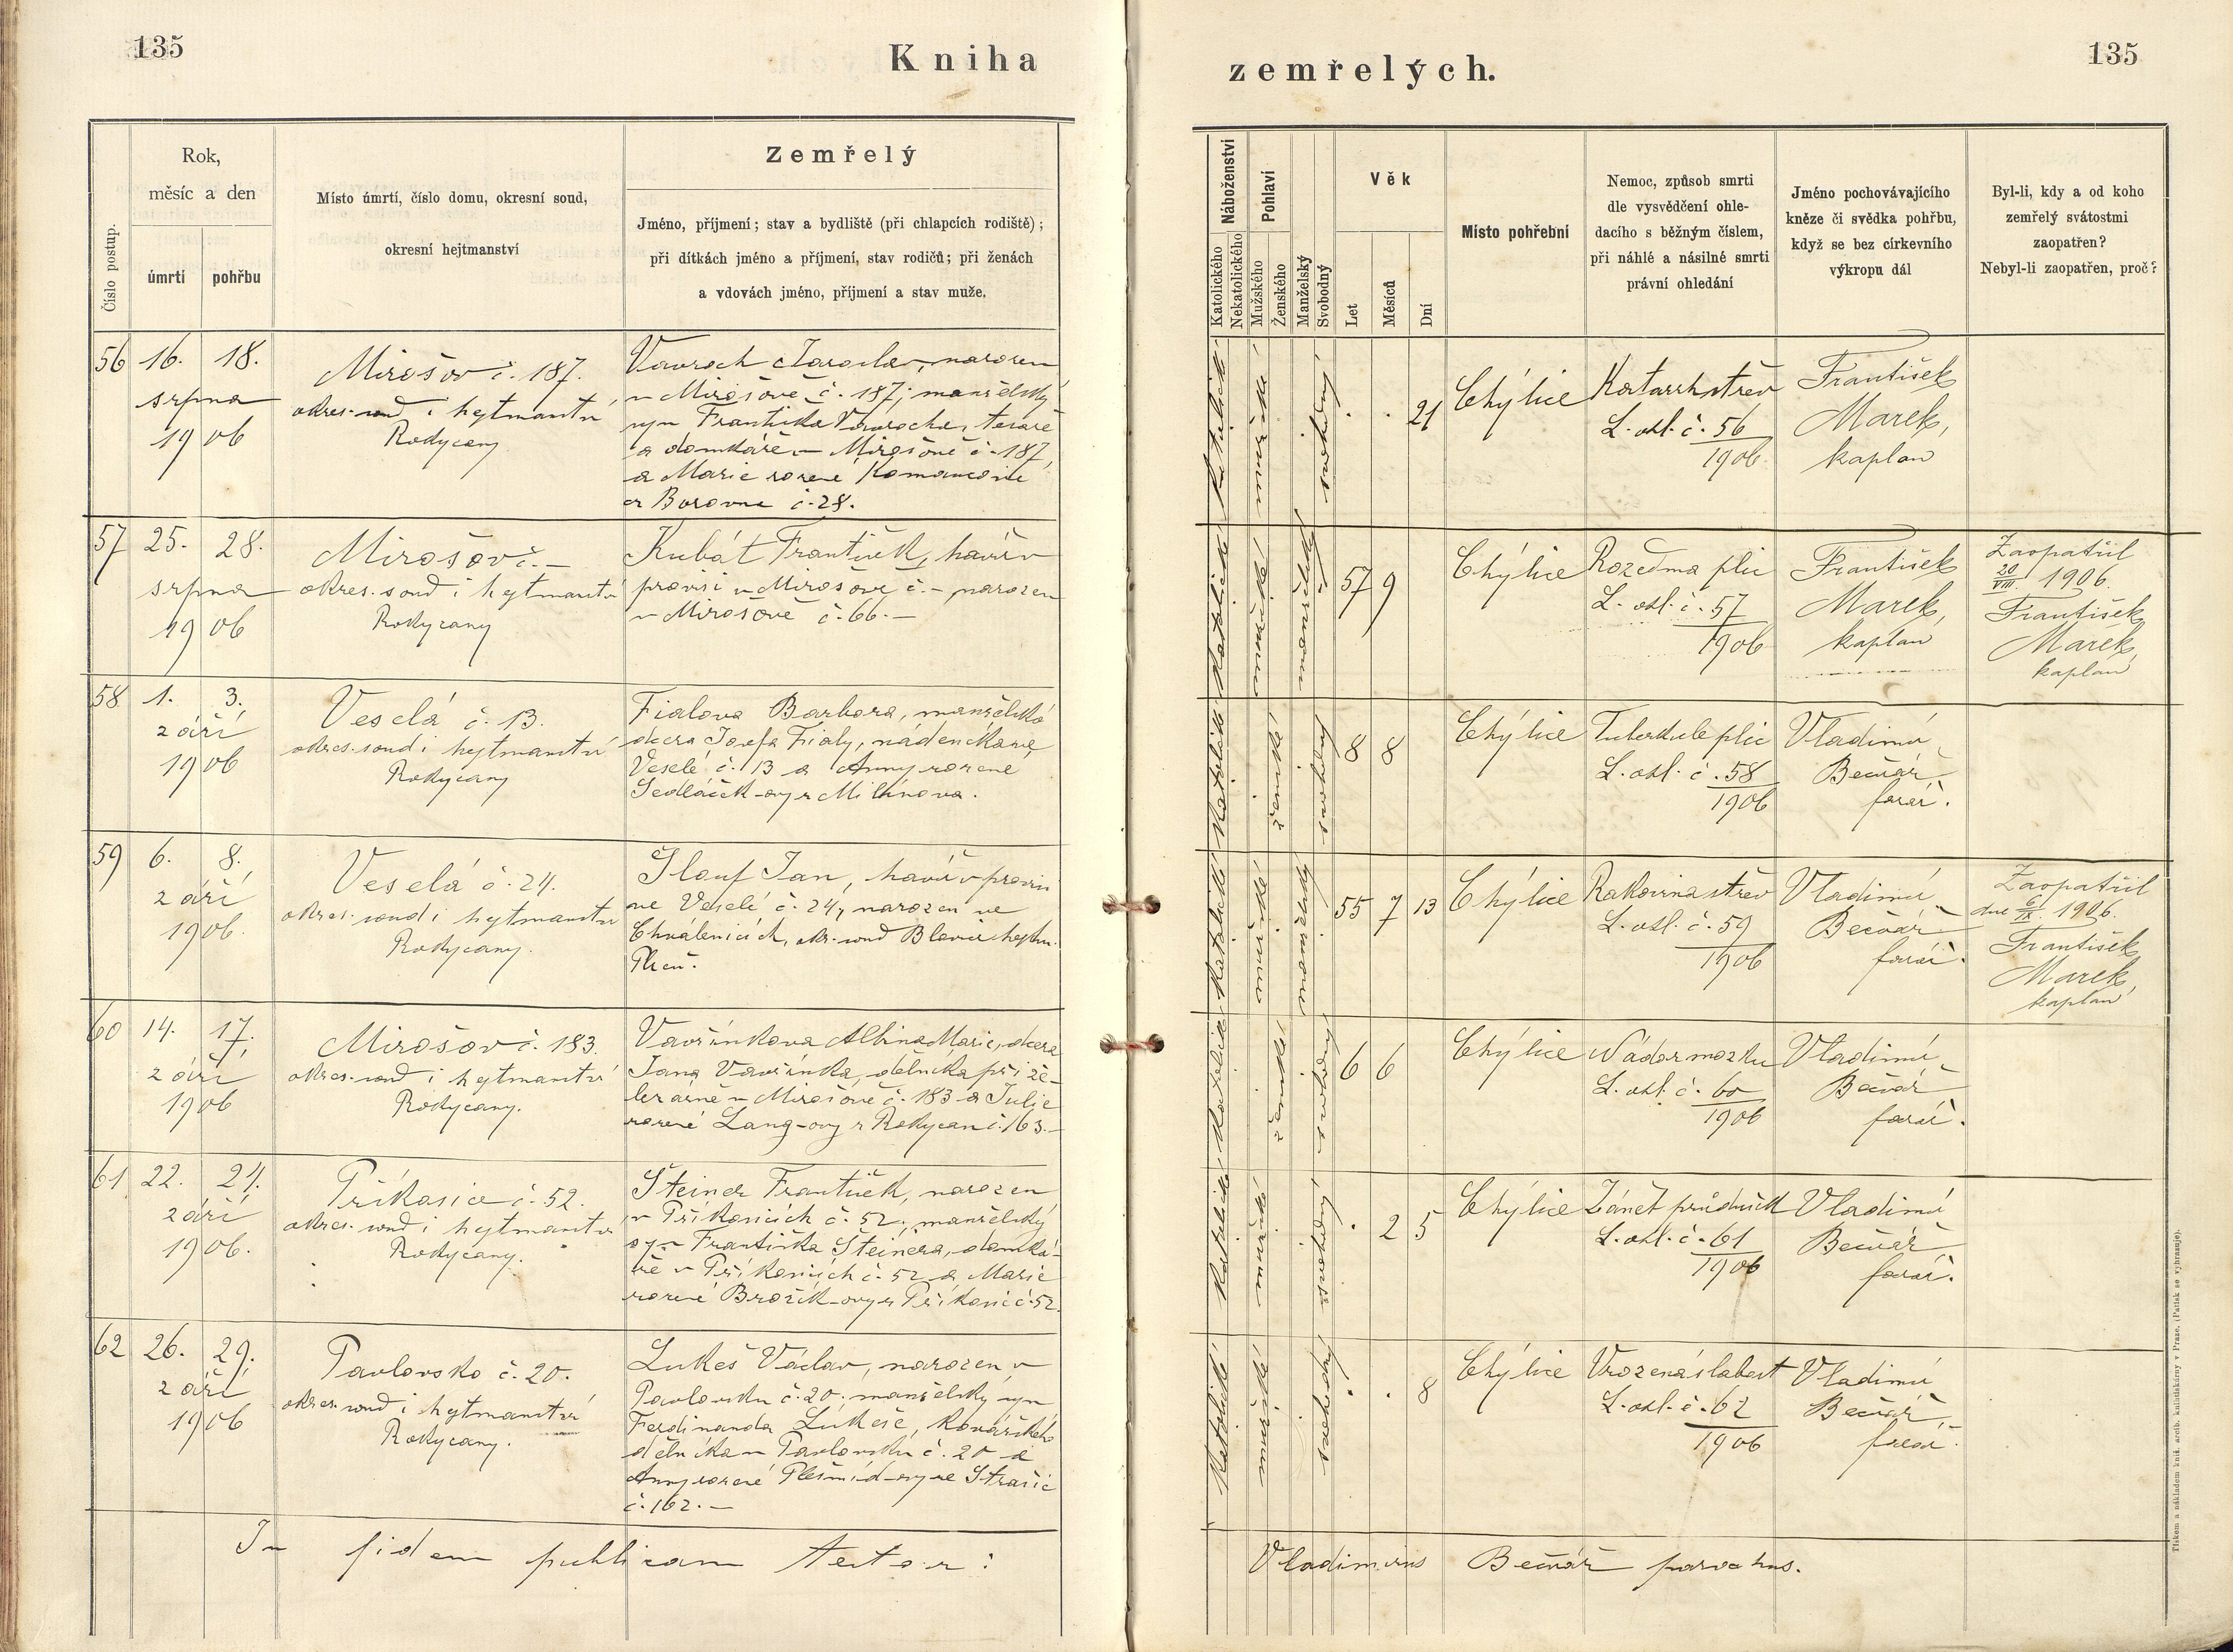 135
Kniha
zemřelých.
135
Číslo postup.
Rok,
měsíc a den
úmrtí
pohřbu
Místo úmrtí, číslo domu, okresní soud,
okresní hejtmanství
Zemřelý
Jméno, příjmení; stav a bydliště (při chlapcích rodiště);
při dítkách jméno a příjmení, stav rodičů; při ženách
a vdovách jméno, příjmení a stav muže.
Náboženství
Katolického
Nekatolického
Pohlaví
Mužského
Ženského
Manželský
Svobodný
Věk
Let
Měsíců
Dní
Místo pohřební
Nemoc, způsob smrti
dle vysvědčení ohle-
dacího s běžným číslem,
při náhlé a násilné smrti
právní ohledání
Jméno pochovávajícího
kněze či svědka pohřbu,
když se bez církevního
výkropu dál
Byl-li, kdy a od koho
zemřelý svátostmi
zaopatřen?
Nebyl-li zaopatřen, proč?
56
16. 18.
srpna
1906
Mirošov č. 187.
okres. soud i hejtmanství
Rokycany
Vavroch Jaroslav, narozen
v Mirošově č. 187; manželský
syn Františka Vavrocha, tesaře
a domkáře v Mirošově č. 187,
a Marie rozené
z Borovna č. 28.
katolické
mužské
svobodný
. . 21
Chýlice
Katarrh střev
L. ohl. č. 56
1906
František
Marek,
kaplan
57
25. 28.
srpna
1906
Mirošov č. –
okres. soud i hejtmanství
Rokycany
Kubát František, havíř v
provisi v Mirošově č. – narozen
v Mirošově č. 66. –
katolické
mužské
manželský
57 9
Chýlice
Rozedma plic
L. ohl. č. 57
1906
František
Marek,
kaplan
Zaopatřil
20/VIII 1906.
František
Marek,
kaplan
58
1. 3.
září
1906
Veselá č. 13.
okres. soud i hejtmanství
Rokycany
Fialova Barbora, manželská
dcera Josefa Fialy, nádeníka ve
Veselé č. 13 a Anny rozené
Sedláčk-ovy z Milínova.
katolické
ženské
svobodný
8 8
Chýlice
Tuberkule plic
L. ohl. č. 58
1906
Vladimír
Bečvář,
farář.
59
6. 8.
září
1906.
Veselá č. 24.
okres. soud i hejtmanství
Rokycany.
Jlouf Jan, havíř v provisi
ve Veselé č. 24, narozen ve
Chválenicích, okr. soud Blovice hejtm.
Plzeň.
katolické
mužské
manželský
55 7 13
Chýlice
Rakovina střev
L. ohl. č. 59
1906
Vladimír
Bečvář
farář.
Zaopatřil
dne 6/IX. 1906.
František
Marek,
kaplan
60
14. 17.
září
1906
Mirošov č. 183.
okres. soud i hejtmanství
Rokycany.
Vavřinkova Albina Marie, dcera
Jana Vavřinka, dělníka při že-
lezárně v Mirošově č. 183 a Julie
rozené Lang-ovy z Rokycan č. 163. –
katolické
ženské
svobodný
6 6
Chýlice
Nádor mozku
L. ohl. č. 60
1906
Vladimír
Bečvář
farář.
61
22. 24.
září
1906.
Příkosice č. 52.
okres. soud i hejtmanství
Rokycany.
Šteiner František, narozen
v Příkosicích č. 52, manželský
syn Františka Šteinera, domká-
ře v Příkosicích č. 52 a Marie
rozené Brožík-ovy z Příkosic č. 52.
katolické
mužské
svobodný
. 2 5
Chýlice
Zánět průdušek
L. ohl. č. 61
1906
Vladimír
Bečvář,
farář.
62
26. 29.
září
1906
Pavlovsko č. 20.
okres. soud i hejtmanství
Rokycany.
Lukeš Václav, narozen v
Pavlovsku č. 20. manželský syn
Ferdinanda Lukeše, kovářského
dělníka v Pavlovsku č. 20 a
Anny rozené Plešmíd-ovy ze Strašic
č. 162. –
katolické
mužské
svobodný
. . 8
Chýlice
Vrozená slabost
L. ohl. č. 62
1906
Vladimír
Bečvář,
farář.
In fidem publicam Testor:
Vladimirus Bečvář parochus.
Tiskem a nákladem knih. arcib. knihtiskárny v Praze. (Patisk se vyhrazuje).